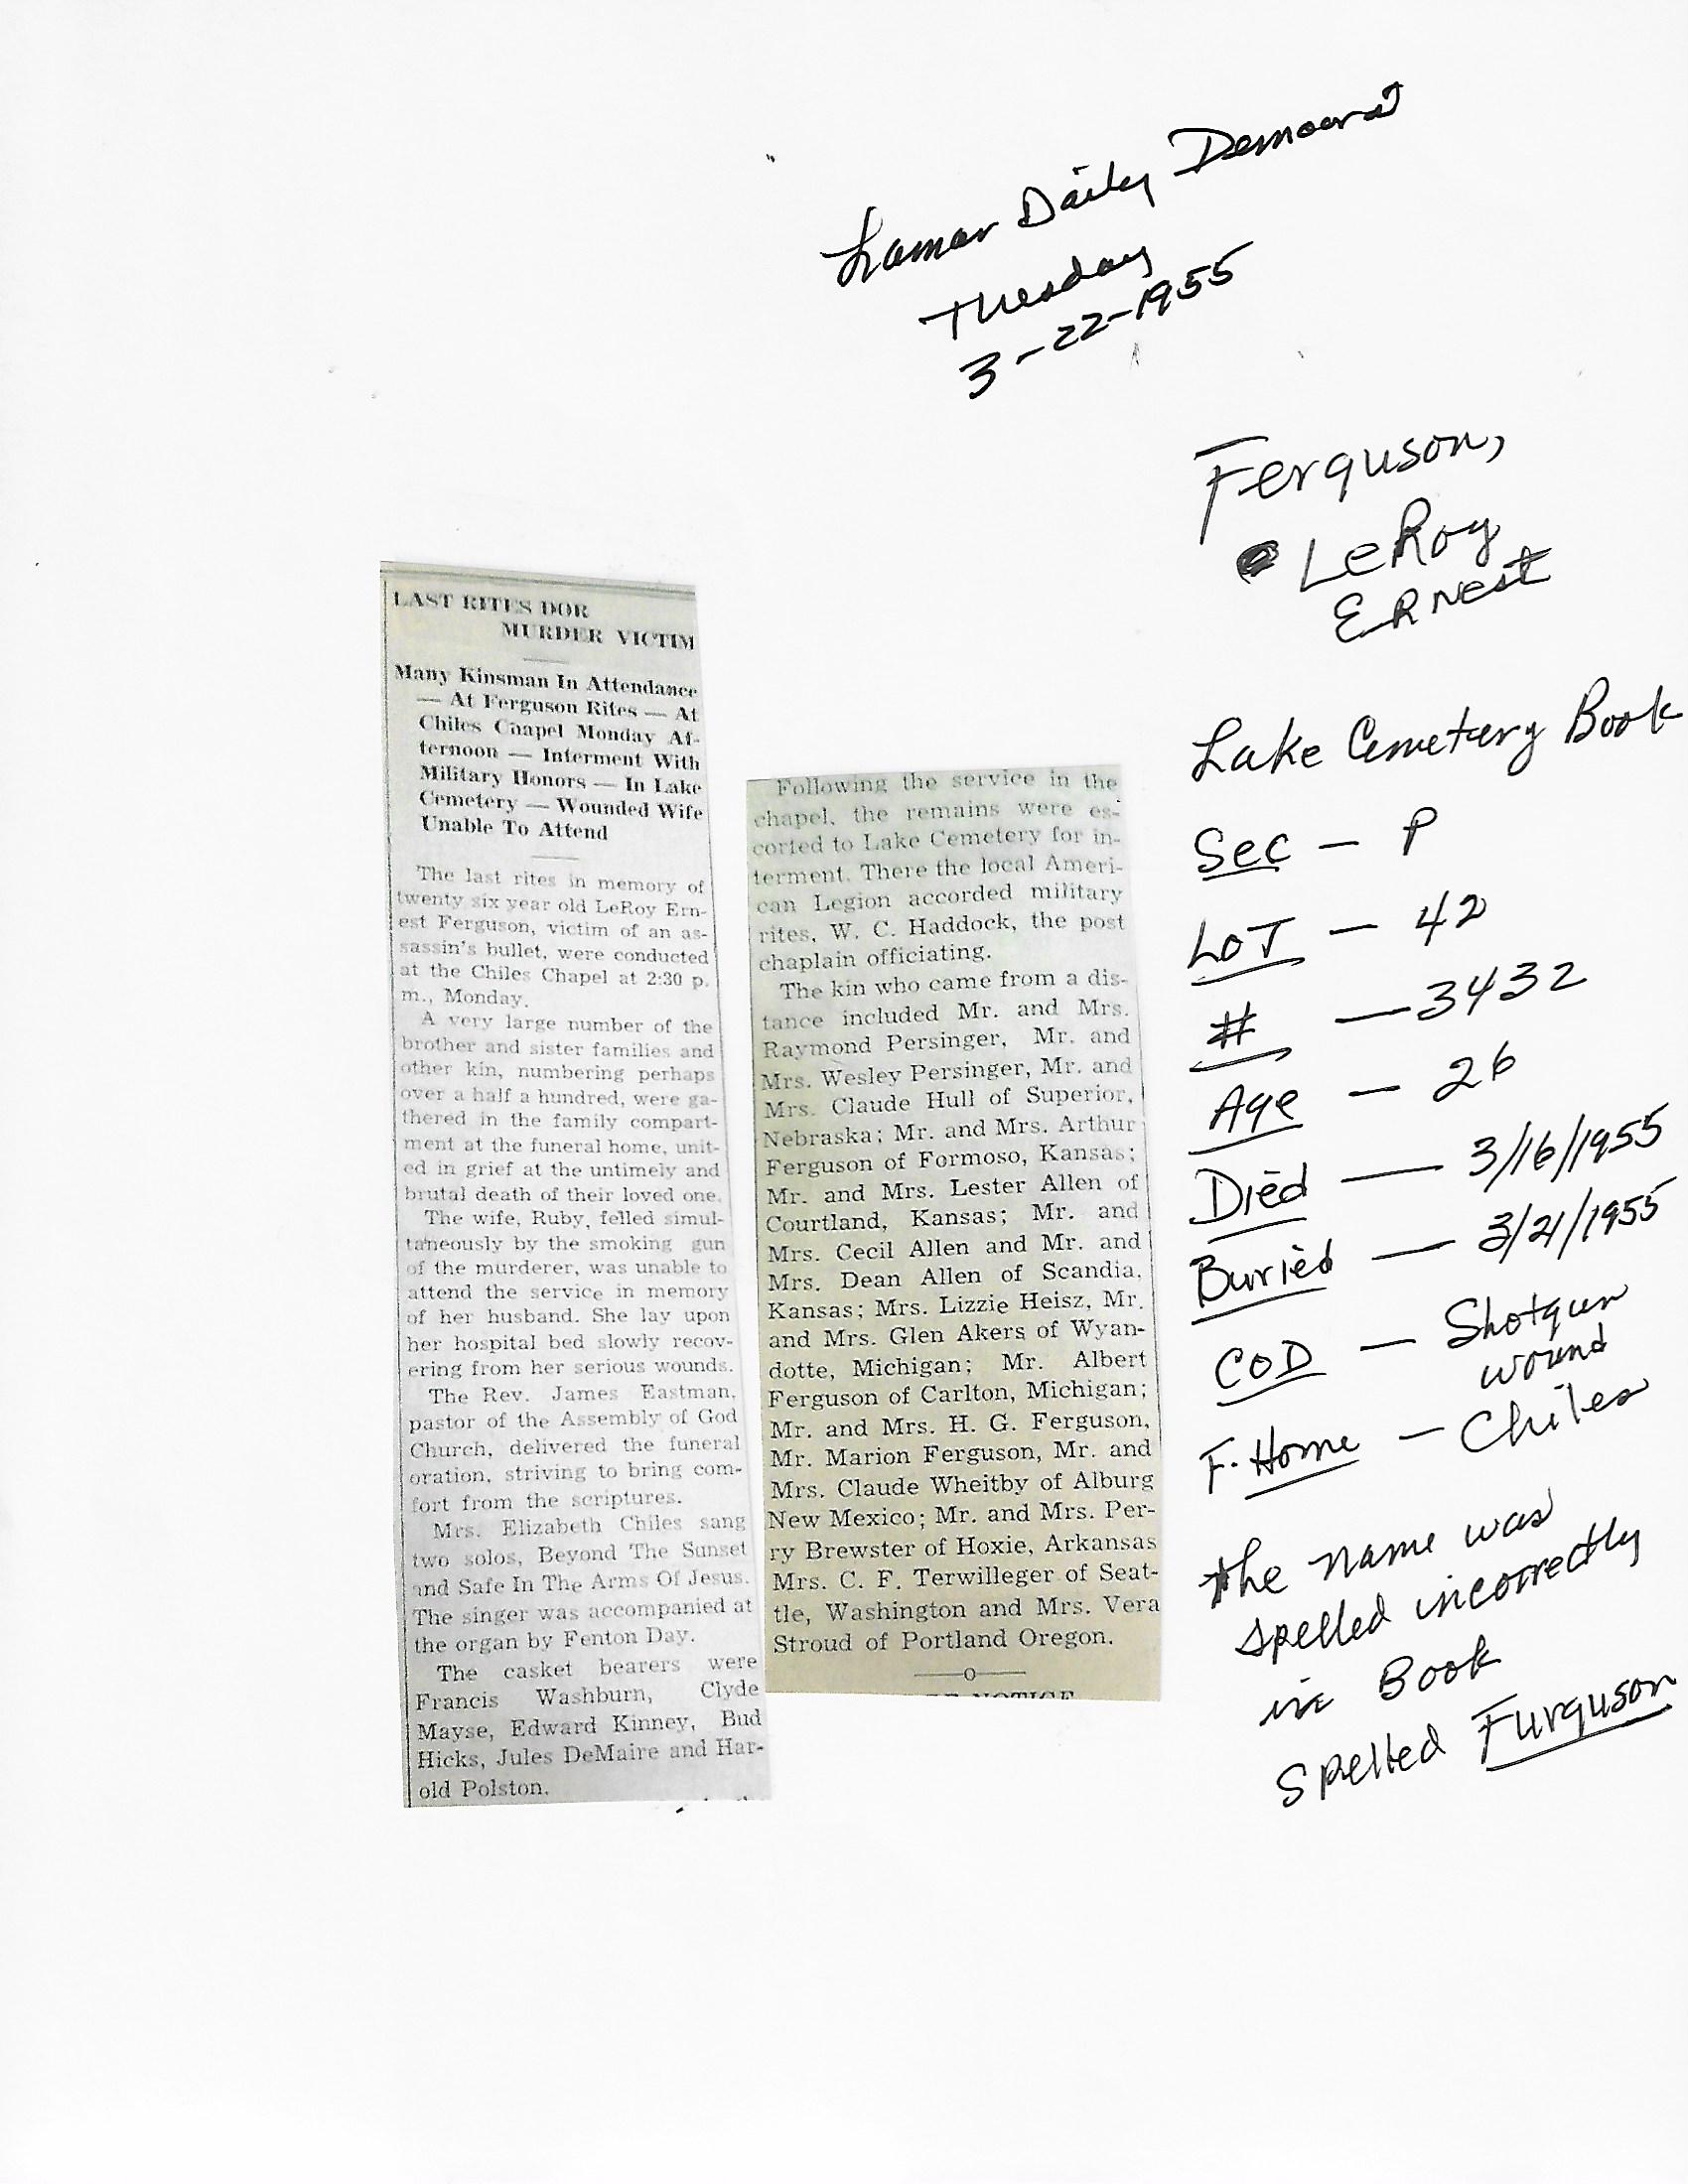 Lamar Daily Democrat
Tuesday
3-22-1955
Ferguson,
LeRoy
Ernest
LAST RITES DOR
MURDER VICTIM
Many Kinsman In Attendance
— At Ferguson Rites — At
Chiles Chapel Monday Af-
ternoon — Interment With
Military Honors — In Lake
Cemetery — Wounded Wife
Unable To Attend
The last rites in memory of
twenty six year old LeRoy Ern-
est Ferguson, victim of an as-
sassin's bullet, were conducted
at the Chiles Chapel at 2:30 p.
m., Monday.
A very large number of the
brother and sister families and
other kin, numbering perhaps
over a half a hundred, were ga-
thered in the family compart-
ment at the funeral home, unit-
ed in grief at the untimely and
brutal death of their loved one.
The wife, Ruby, felled simul-
taneously by the smoking gun
of the murderer, was unable to
attend the service in memory
of her husband. She lay upon
her hospital bed slowly recov-
ering from her serious wounds.
The Rev. James Eastman,
pastor of the Assembly of God
Church, delivered the funeral
oration, striving to bring com-
fort from the scriptures.
Mrs. Elizabeth Chiles sang
two solos, Beyond The Sunset
and Safe In The Arms Of Jesus.
The singer was accompanied at
the organ by Fenton Day.
The casket bearers were
Francis Washburn, Clyde
Mayse, Edward Kinney, Bud
Hicks, Jules DeMaire and Har-
old Polston.
Following the service in the
chapel, the remains were es-
corted to Lake Cemetery for in-
terment. There the local Ameri-
can Legion accorded military
rites, W. C. Haddock, the post
chaplain officiating.
The kin who came from a dis-
tance included Mr. and Mrs.
Raymond Persinger, Mr. and
Mrs. Wesley Persinger, Mr. and
Mrs. Claude Hull of Superior,
Nebraska; Mr. and Mrs. Arthur
Ferguson of Formoso, Kansas;
Mr. and Mrs. Lester Allen of
Courtland, Kansas; Mr. and
Mrs. Cecil Allen and Mr. and
Mrs. Dean Allen of Scandia,
Kansas; Mrs. Lizzie Heisz, Mr.
and Mrs. Glen Akers of Wyan-
dotte, Michigan; Mr. Albert
Ferguson of Carlton, Michigan;
Mr. and Mrs. H. G. Ferguson,
Mr. Marion Ferguson, Mr. and
Mrs. Claude Wheitby of Alburg
New Mexico; Mr. and Mrs. Per-
ry Brewster of Hoxie, Arkansas
Mrs. C. F. Terwilleger of Seat-
tle, Washington and Mrs. Vera
Stroud of Portland Oregon.
—o—
NOTICE
Lake Cemetery Book
Sec — P
LOT — 42
# — 3432
Age — 26
Died — 3/16/1955
Buried — 3/21/1955
COD — Shotgun
wound
F. Home — Chiles
The name was
spelled incorrectly
in Book
Spelled Furguson